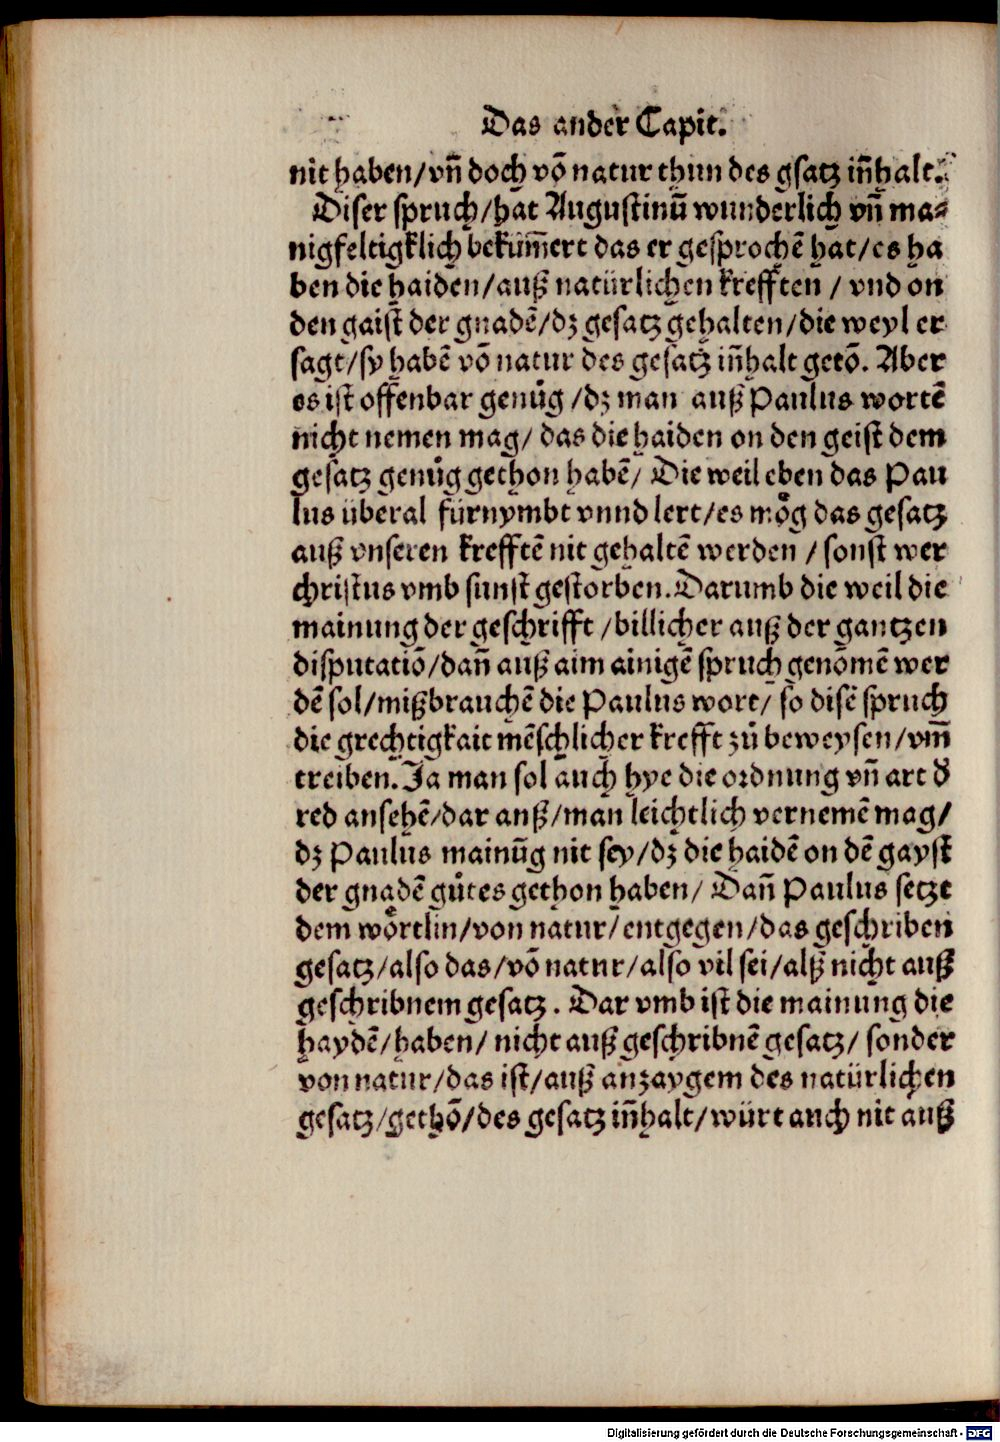 Das ander Capit.
nit haben/vn̄ doch vō natur thun des gsatz in̄halt.
Diser spruch/hat Augustinū wunderlich vn̄ ma⸗
nigfeltigklich bekūm̄ert das er gesprochē hat/es ha
ben die haiden/auß natürlichen krefften / vnd on
den gaist der gnadē/dz gesatz gehalten/die weyl er
sagt/sy habē vō natur des gesatz in̄halt getō. Aber
es ist offenbar genůg /dz man auß Paulus wortē
nicht nemen mag/ das die haiden on den geist dem
gesatz genůg gethon habē/ Die weil eben das Pau
lus überal fürnymbt vnnd lert/es moͤg das gesatz
auß vnseren krefftē nit gehaltē werden / sonst wer
christus vmb sunst gestorben. Darumb die weil die
mainung der geschrifft /billicher auß der gantzen
disputatiō/dan̄ auß aim ainigē spruch genōmē wer
dē sol/mißbrauchē die Paulus wort/ so disē spruch
die grechtigkait mēschlicher krefft zů beweysen/vm̄
treiben. Ja man sol auch hye die ordnung vn̄ art d̄
red ansehē/dar anß/man leichtlich vernemē mag/
dz Paulus mainūg nit sey/dz die haidē on dē gayst
der gnadē gůtes gethon haben/ Dan̄ Paulus setzt
dem woͤrtlin/von natur/entgegen/das geschriben
gesatz/also das/vō natur/also vil sei/alß nicht auß
geschribnem gesatz . Dar vmb ist die mainung die
haydē/haben/ nicht auß geschribnē gesatz/ sonder
von natur/das ist/auß anzaygem des natürlichen
gesatz/gethō/des gesatz in̄halt/würt auch nit auß
Digitalisierung gefördert durch die Deutsche Forschungsgemeinschaft - DFG